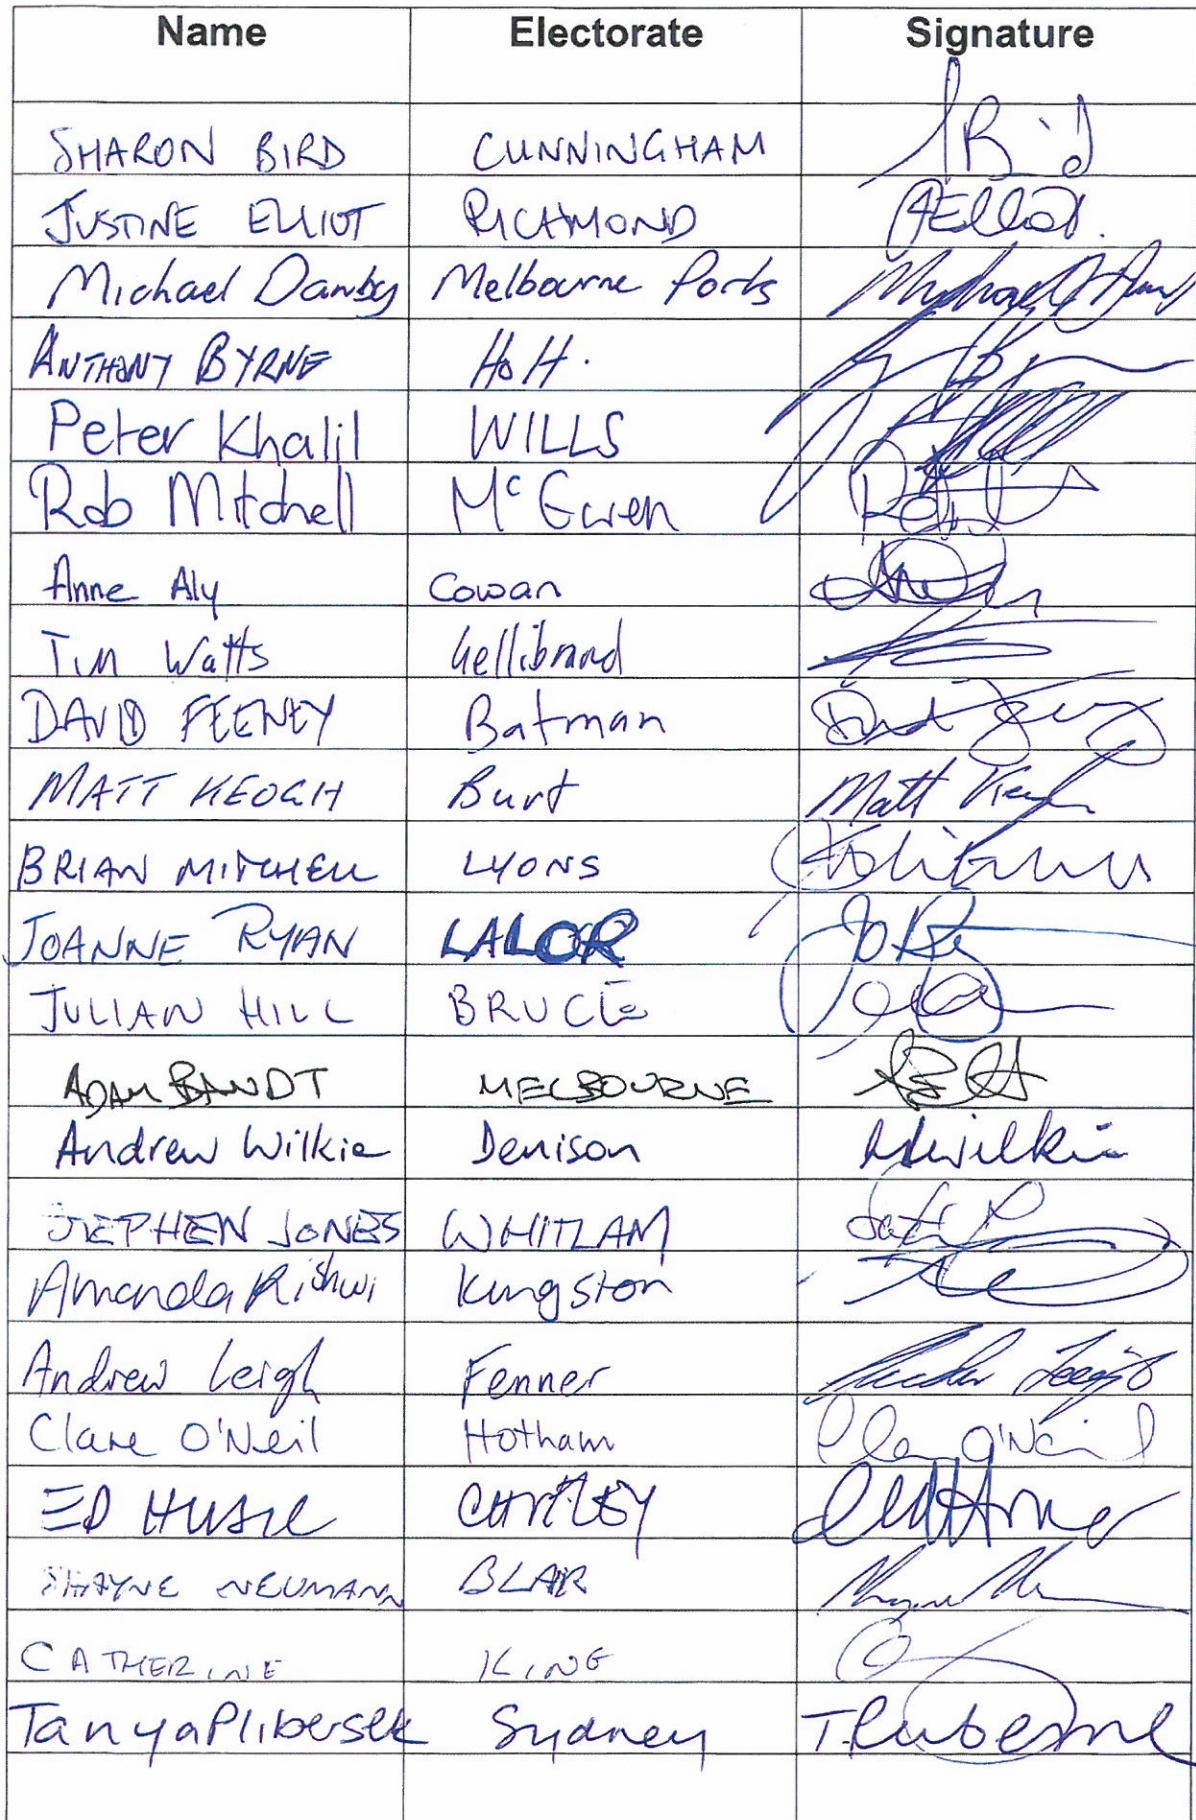 Name Electorate Signature
SHARON BIRD CUNNINGHAM SBird
JUSTINE ELLIOT RICHMOND JElliot.
Michael Danby Melbourne Ports Michael Danby
ANTHONY BYRNE Holt.
Peter Khalil WILLS
Rob Mitchell McEwen
Anne Aly Cowan
Tim Watts Gellibrand
DAVID FEENEY Batman David Feeney
MATT KEOGH Burt Matt Keogh
BRIAN MITCHELL LYONS
JOANNE RYAN LALOR Jo Ryan
JULIAN HILL BRUCE
ADAM BANDT MELBOURNE
Andrew Wilkie Denison AWilkie
STEPHEN JONES WHITLAM
Amanda Rishwi Kingston
Andrew Leigh Fenner Andrew Leigh
Clare O'Neil Hotham Clare O'Neil
ED HUSIC CHIFLEY
SHAYNE NEUMANN BLAIR
CATHERINE KING
Tanya Plibersek Sydney TPlibersek